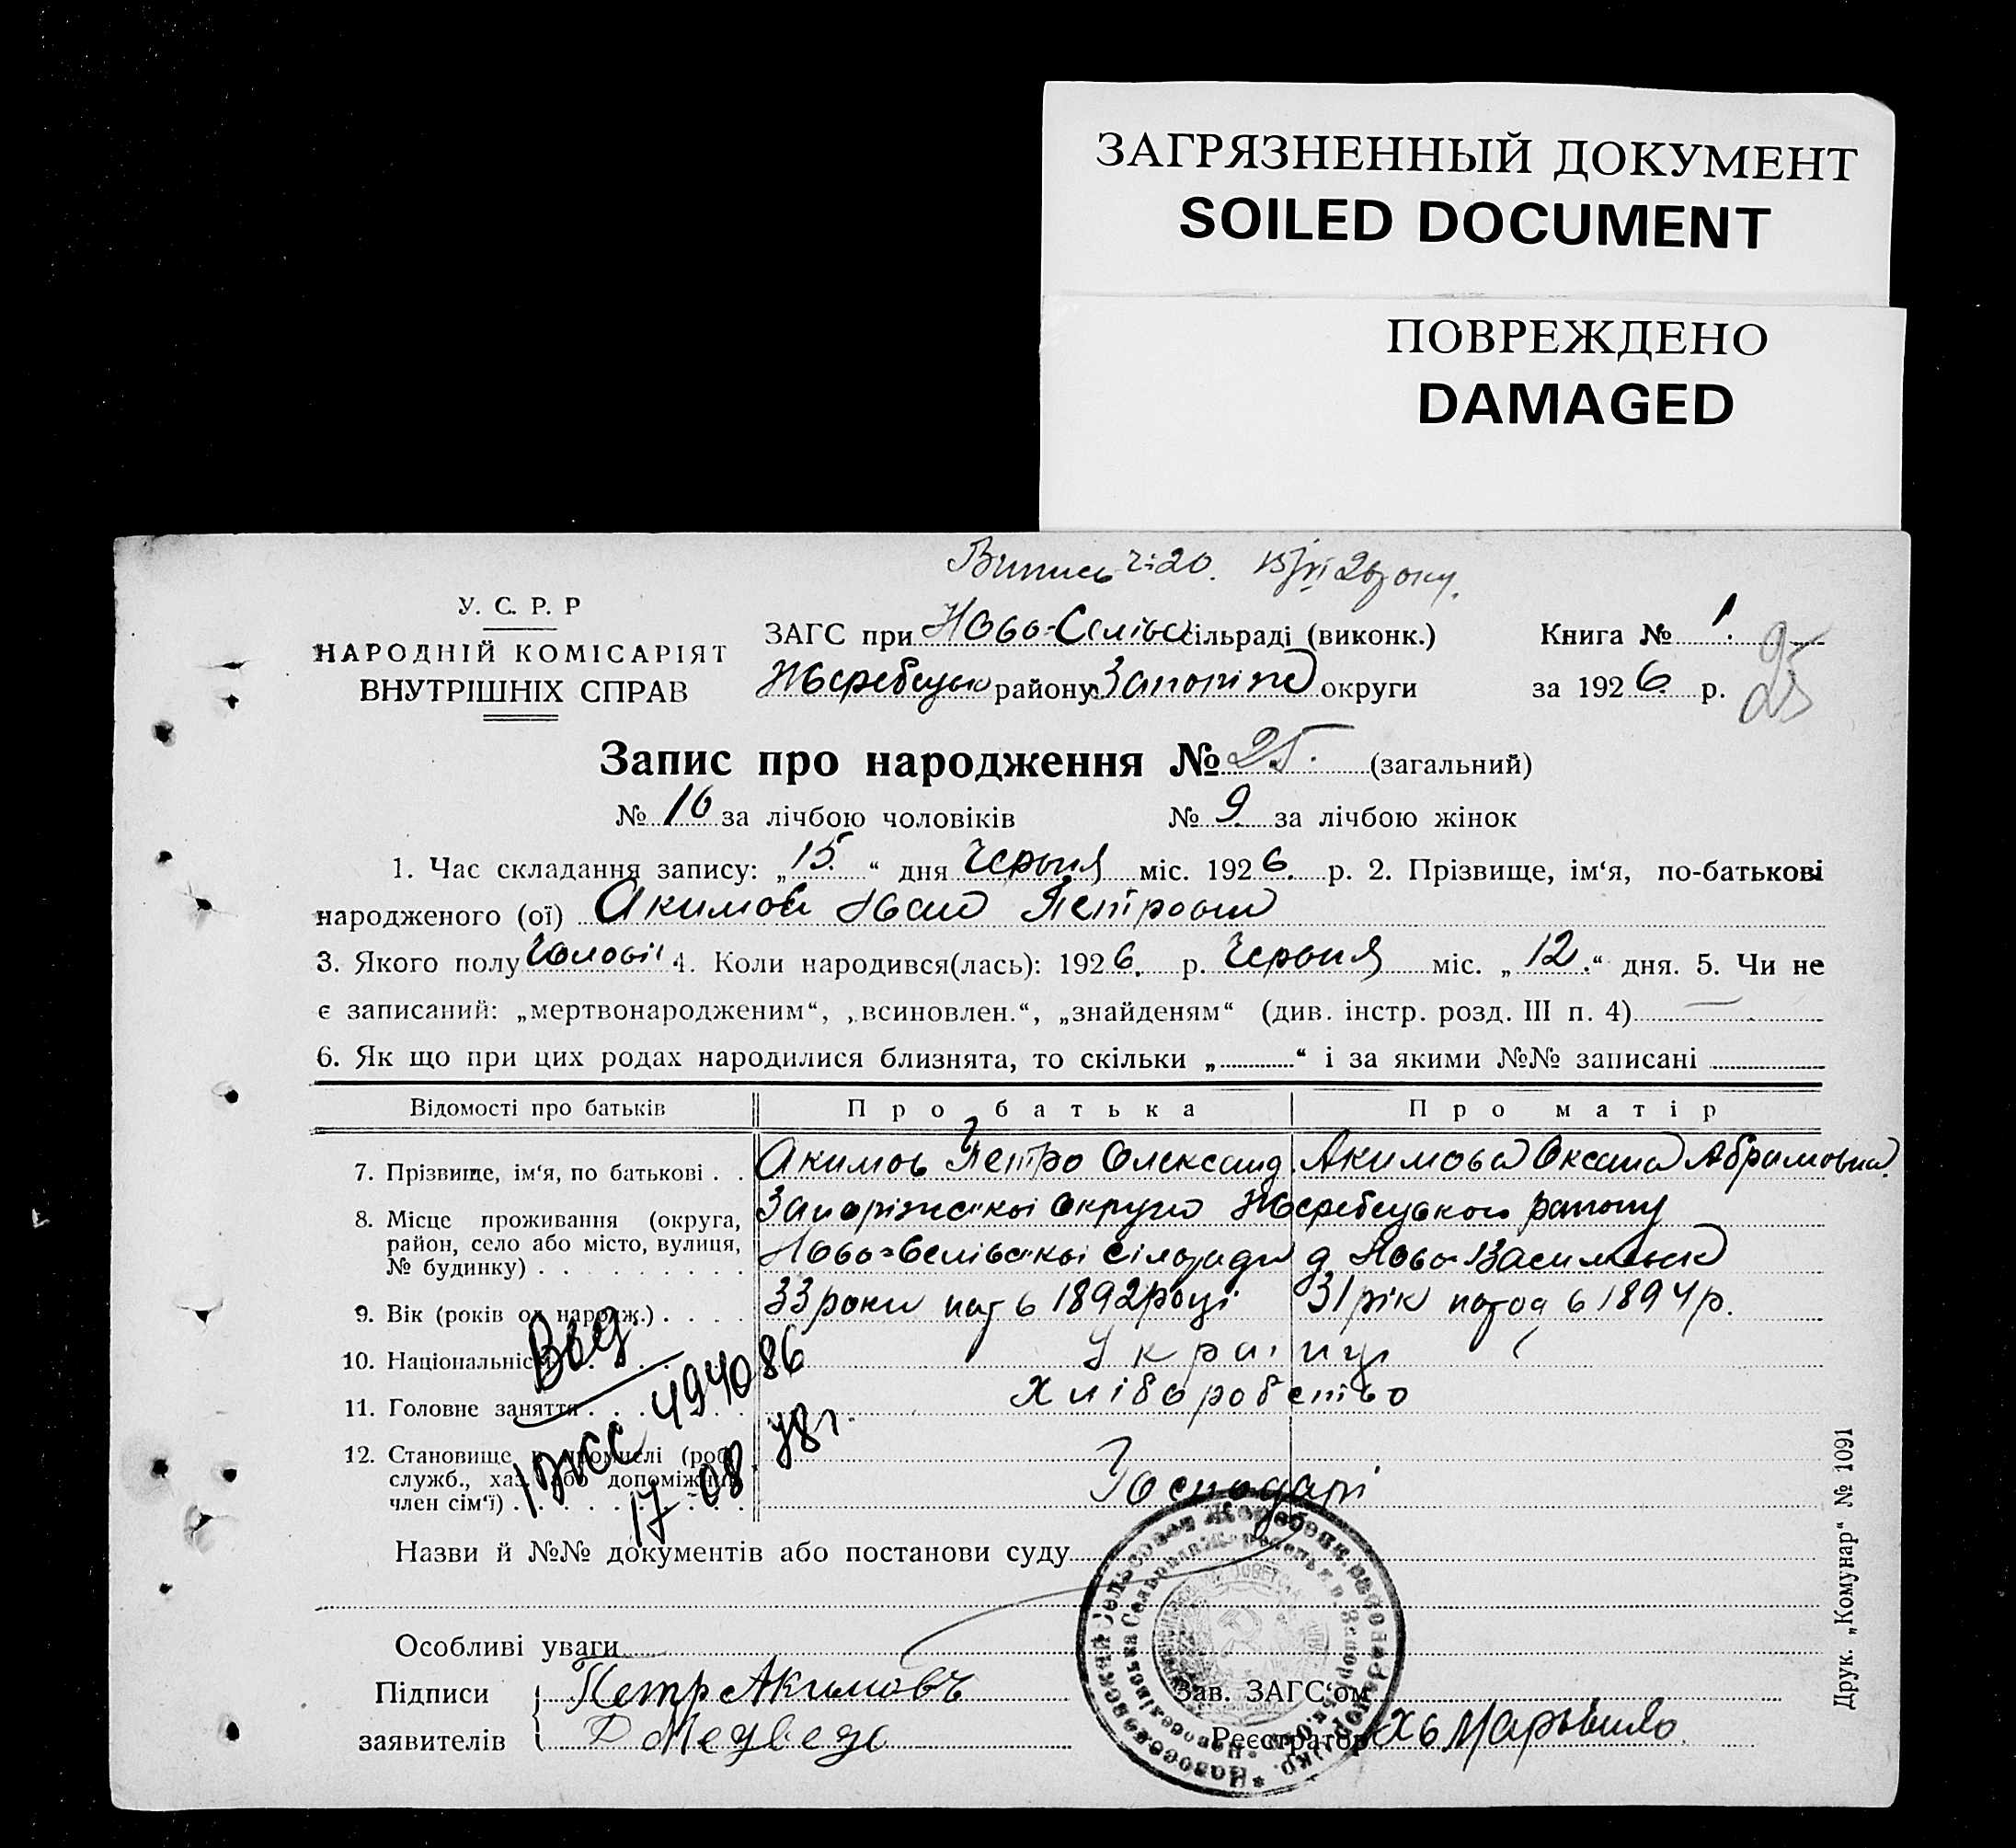 ЗАГРЯЗНЕННЫЙ ДОКУМЕНТ
SOILED DOCUMENT
ПОВРЕЖДЕНО
DAMAGED
Випись ч: 20. 15/VI 26 року.
У. С. Р. Р
НАРОДНІЙ КОМІСАРІЯТ
ВНУТРІШНІХ СПРАВ
ЗАГС при Ново-Селівс сільраді (виконк.)
Жеребецьк району Запоріж округи
Книга № 1.
за 1926 р.
25
Запис про народження № 25. (загальний)
№ 16 за лічбою чоловіків № 9 за лічбою жінок
1. Час складання запису: „15.“ дня Червня міс. 1926. р. 2. Прізвище, ім‘я, по-батькові
народженого (ої) Акимов Іван Петрович
3. Якого полу Чоловіч 4. Коли народився(лась): 1926. р. Червня міс. „12.“ дня. 5. Чи не
є записаний: „мертвонародженим“, „всиновлен.“, „знайденям“ (див. інстр. розд. III п. 4) —
6. Як що при цих родах народилися близнята, то скільки „ “ і за якими №№ записані
Відомості про батьків Про батька Про матір
7. Прізвище, ім‘я, по батькові . . Акимов Петро Олександ. Акимова Оксана Абрамовна
8. Місце проживання (округа, Запоріжської округи Жеребецького району
район, село або місто, вулиця, Ново-Селівської сільради д Ново-Василевск
№ будинку) 33 роки нар в 1892 році 31 рік народ в 1894 р.
9. Вік (років од народж.)
10. Національність Українці
11. Головне заняття Хліборобство
12. Становище в промислі (роб.,
служб., хаз. або допоміжний
член сім‘ї) Господарі
494086
17-08. 78г.
Назви й №№ документів або постанови суду
Особливі уваги
Підписи Петр Акимовъ
заявителів Д Медведь
Зав. ЗАГС‘ом
Реєстратор
Друк. „Комунар“ № 1091